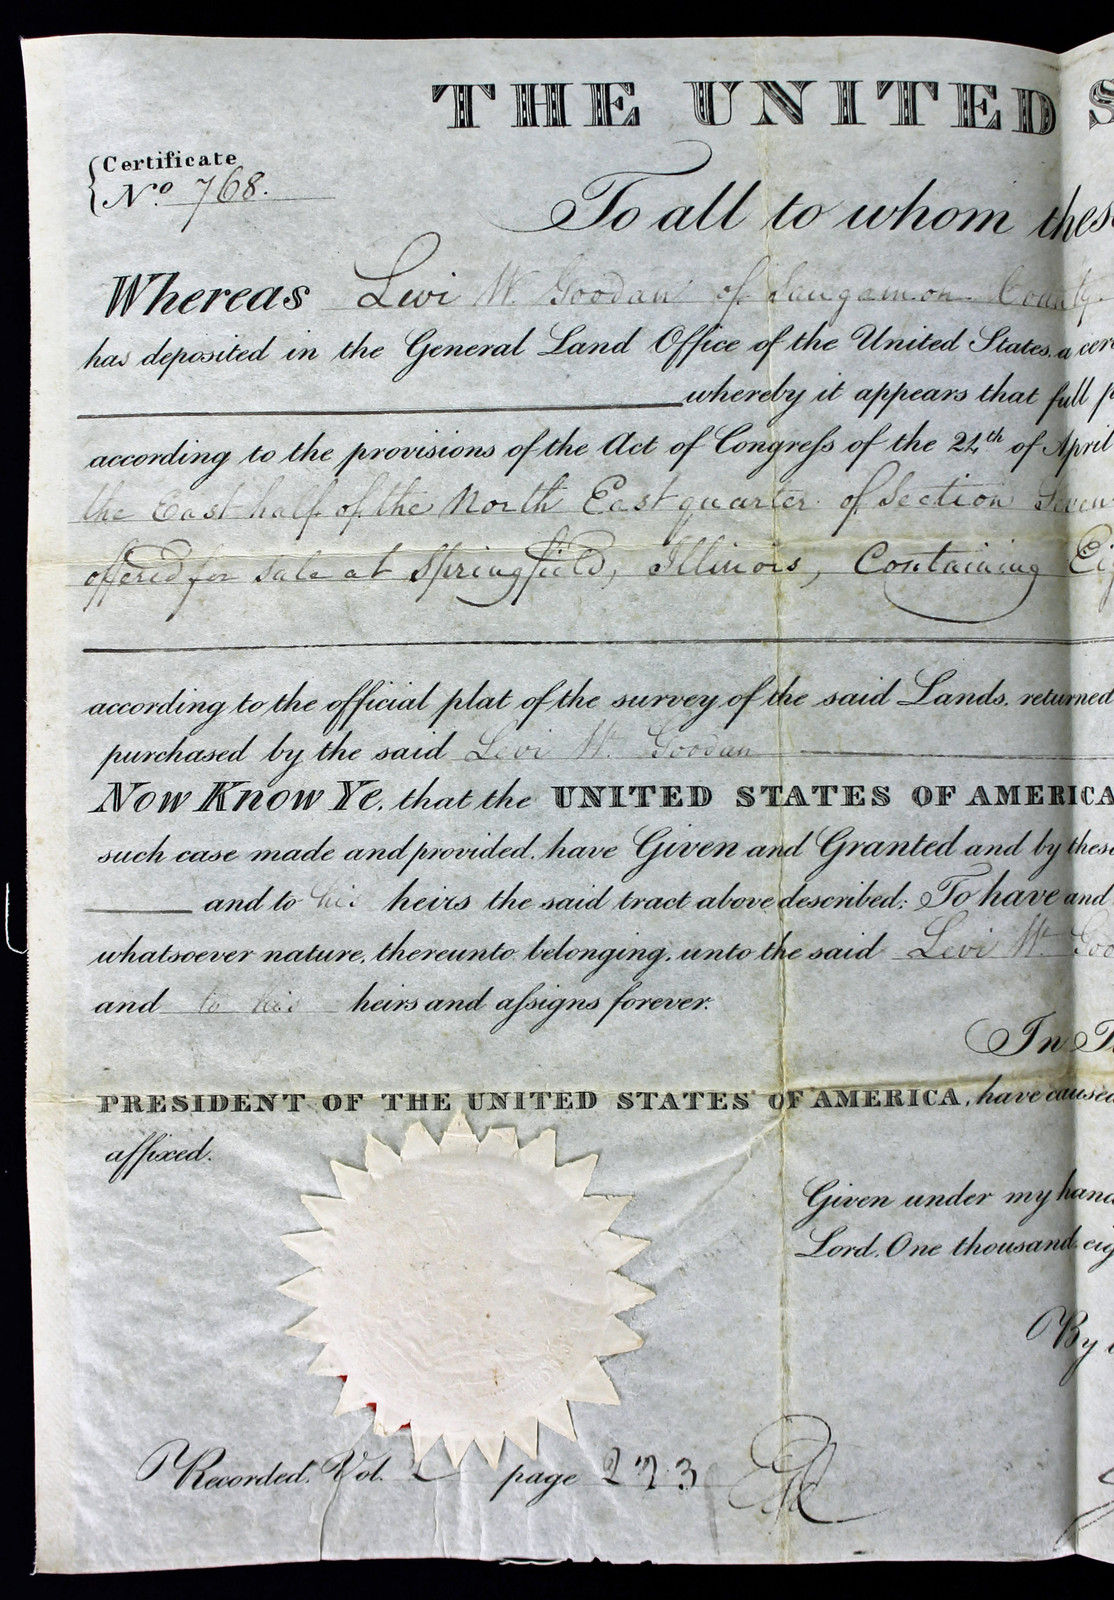 THE UNITED S
Certificate
No. 768.
To all to whom these
Whereas Levi W. Goodan of Sangamon County.
has deposited in the General Land Office of the United States, a cer
whereby it appears that full p
according to the provisions of the Act of Congreſs of the 24th of April
the East half of the North East quarter of Section Seven
offered for sale at Springfield, Illinois, Containing Eig
according to the official plat of the survey of the said Lands, returned
purchased by the said Levi W. Goodan
Now Know Ye, that the UNITED STATES OF AMERICA
such case made and provided, have Given and Granted and by these
and to his heirs the said tract above described; To have and
whatsoever nature, thereunto belonging, unto the said Levi W. Goo
and to his heirs and aſsigns forever.
In T
PRESIDENT OF THE UNITED STATES OF AMERICA, have caused
affixed.
Given under my hand
Lord, One thousand eig
By
Recorded, Vol. 2 page 273